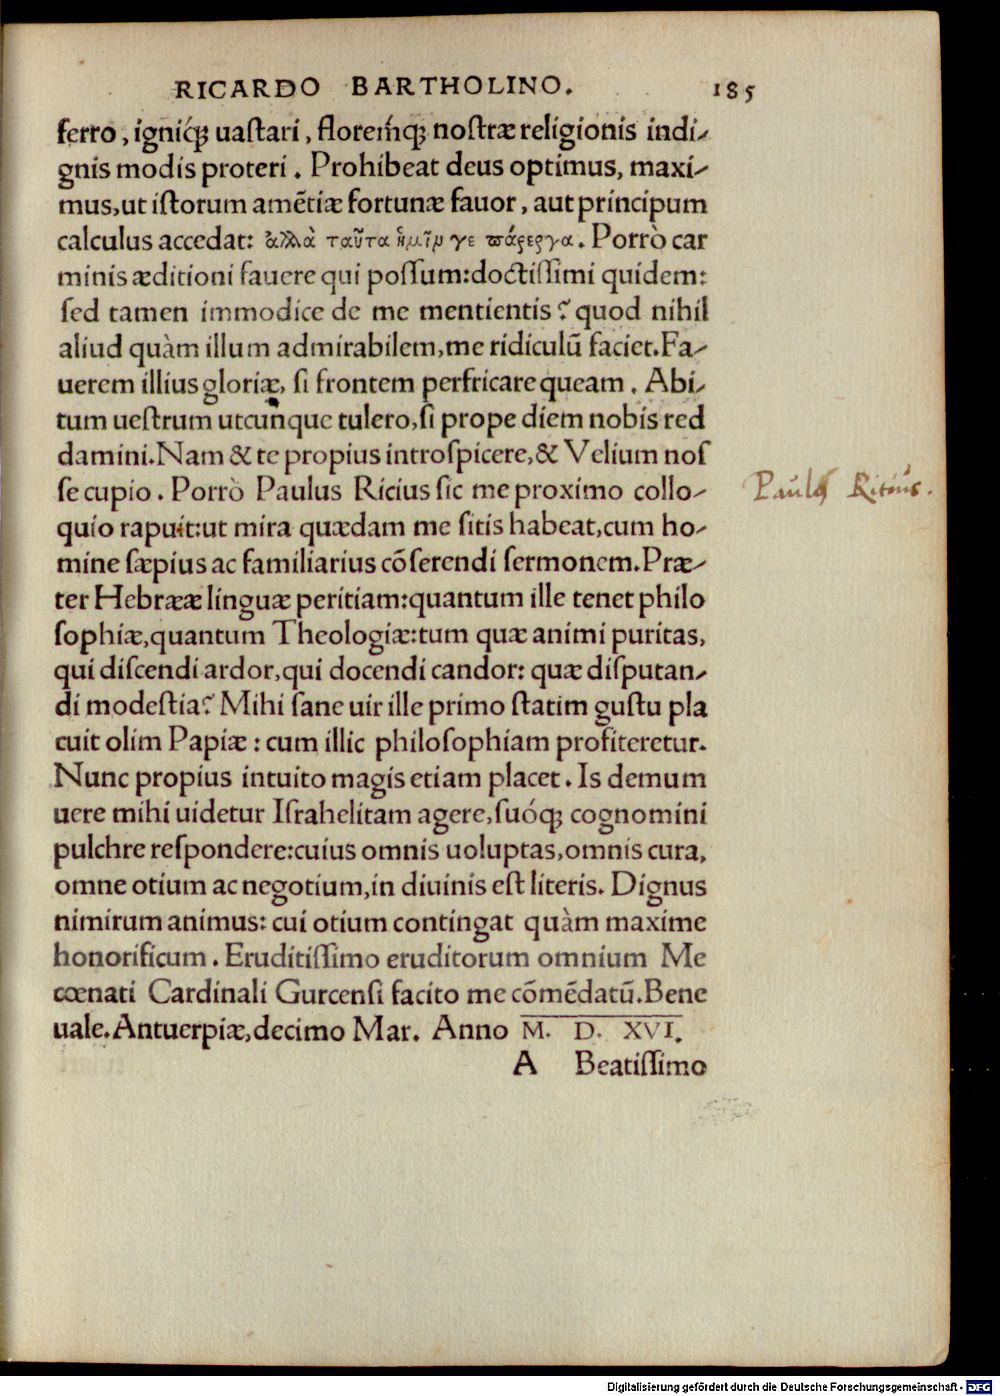 RICARDO BARTHOLINO. 185
ferro, igniq́ꝫ uaſtari, floremq́ꝫ noſtræ religionis indi⸗
gnis modis proteri. Prohibeat deus optimus, maxi⸗
mus, ut iſtorum amẽtiæ fortunæ fauor, aut principum
calculus accedat: ἀλλὰ ταῦτα ἡμῖν γε πάρεργα. Porrò car
minis æditioni fauere qui poſſum: doctiſſimi quidem:
ſed tamen immodice de me mentientis? quod nihil
aliud quàm illum admirabilem, me ridiculũ faciet. Fa⸗
uerem illius gloriæ, ſi frontem perfricare queam. Abi⸗
tum ueſtrum utcunque tulero, ſi prope diem nobis red
damini. Nam & te propius introſpicere, & Velium noſ
ſe cupio. Porrò Paulus Ricius ſic me proximo collo⸗
quio rapuit: ut mira quædam me ſitis habeat, cum ho⸗
mine ſæpius ac familiarius cõſerendi ſermonem. Præ⸗
ter Hebrææ linguæ peritiam: quantum ille tenet philo
ſophiæ, quantum Theologiæ: tum quæ animi puritas,
qui diſcendi ardor, qui docendi candor: quæ diſputan⸗
di modeſtia? Mihi ſane uir ille primo ſtatim guſtu pla
cuit olim Papiæ: cum illic philoſophiam profiteretur.
Nunc propius intuito magis etiam placet. Is demum
uere mihi uidetur Iſrahelitam agere, ſuóqꝫ cognomini
pulchre reſpondere: cuius omnis uoluptas, omnis cura,
omne otium ac negotium, in diuinis eſt literis. Dignus
nimirum animus: cui otium contingat quàm maxime
honorificum. Eruditiſſimo eruditorum omnium Me
cœnati Cardinali Gurcenſi facito me cõmẽdatũ. Bene
uale. Antuerpiæ, decimo Mar. Anno M. D. XVI.
A Beatiſſimo
Paulus Ritius.
Digitalisierung gefördert durch die Deutsche Forschungsgemeinschaft - DFG